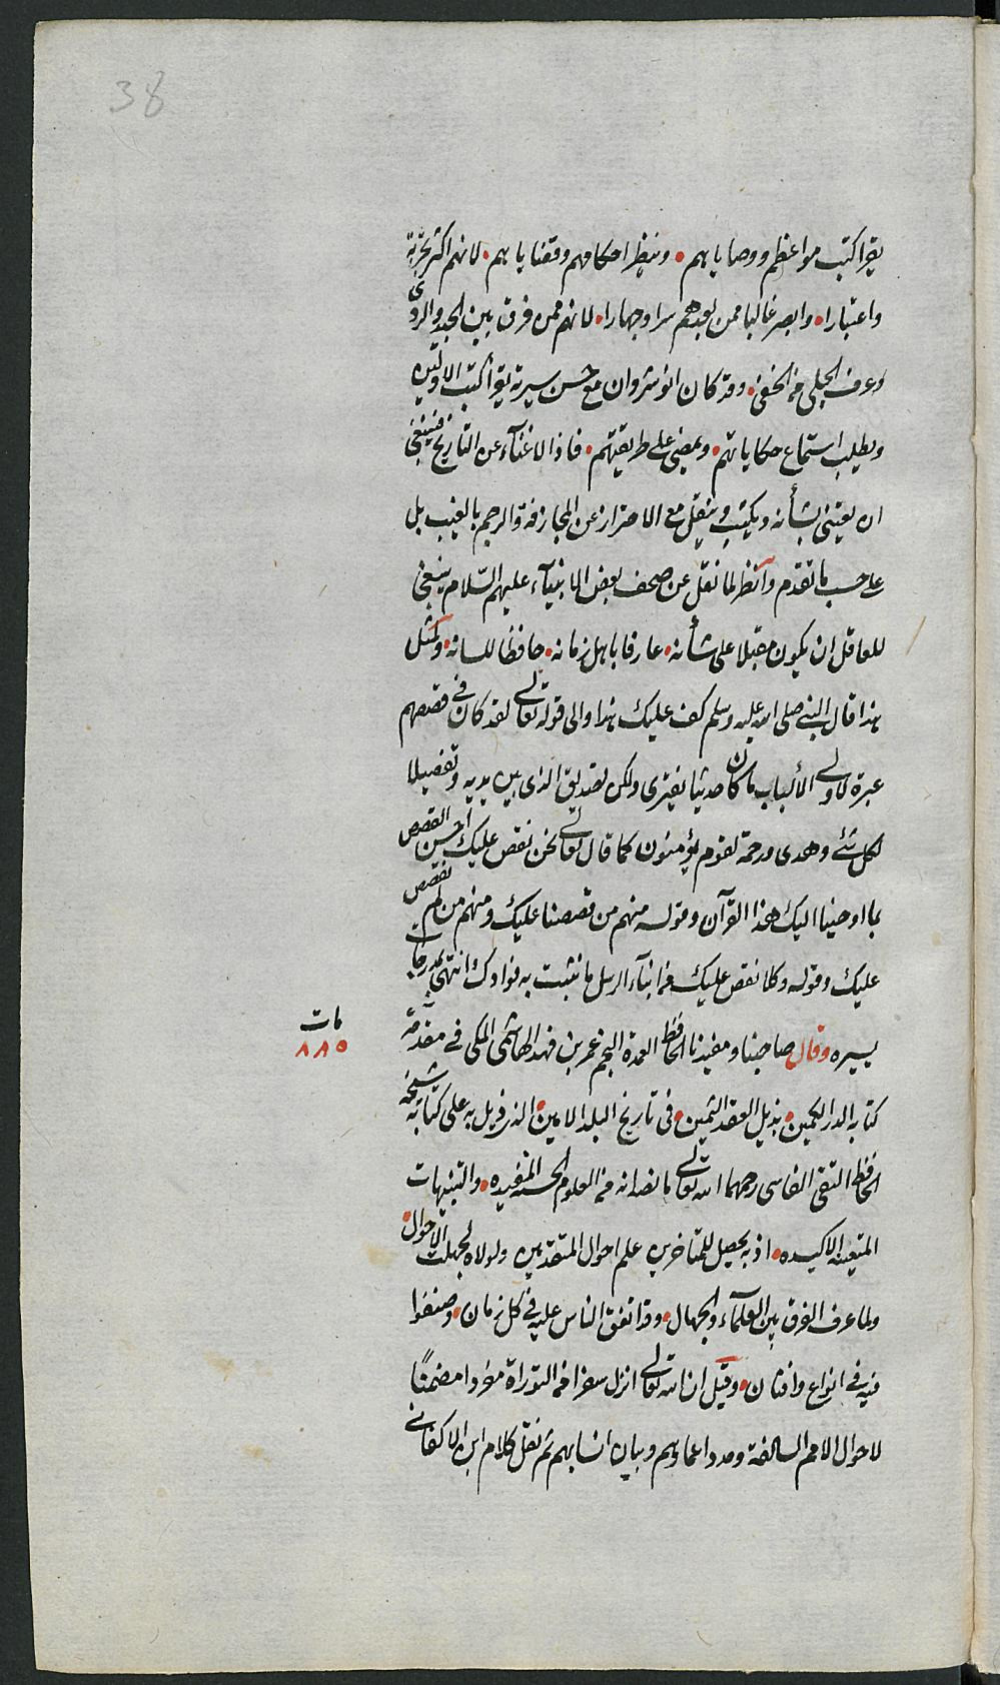 38
يقرا كتب مواعظهم ووصاياهم • وينظر احكامهم وقضاياهم • لانهم اكثر تجربة
واعتبارا • وابصر غالبا ممن بعدهم سرا وجهارا • لانهم ممن فرق بين الجيد والردى
وعرف الجلى من الخفى • وقد كان انوشروان مع حسن سيرته يقرا كتب الاولين
ويطلب استماع حكاياتهم • ويمضى على طريقتهم • فاذا لا غنآء عن التاريخ فينبغى
ان يعتنى بشأنه ويكتب وينقل مع الاحتراز عن المجازفة والرجم بالغيب بل
على حسب ما تقدم وانظر لما نقل عن صحف بعض الانبيآء عليهم السّلام ينبغى
للعاقل ان يكون مقبلا على شأنه • عارفا باهل زمانه • حافظا للسانه • ومثل
هذا قال النبى صلى الله عليه وسلم كف عليك هذا والى قوله تعالى لقد كان فى قصصهم
عبرة لاولى الألباب ما كان حديثا يفترى ولكن تصديق الذى بين يديه وتفصيلا
لكل شئ وهدى ورحمة لقوم يؤمنون كما قال تعالى نحن نقص عليك احسن القصص
بما اوحينا اليك هذا القرآن وقوله منهم من قصصنا عليك ومنهم من لم نقصص
عليك وقوله وكلا نقص عليك من انبآء الرسل ما نثبت به فوادك انتهى بدرجات
يسيره وقال صاحبنا ومفيدنا الحافظ العمدة النجم عمر بن فهد الهاشمى المكى فى مقدمة
مات
٨٨٥
كتابه الدر الكمين • بذيل العقد الثمين • فى تاريخ البلد الامين • الذى ذيل به على كتاب شيخه
الحافظ التقى الفاسى رحمهما الله تعالى ما نصه انه من العلوم الحسنة المفيده • والتنبيهات
المتعينة الاكيده • اذ به يحصل للمتاخرين علم احوال المتقدمين ولولاه لجهلت الاحوال •
ولما عرف الفرق بين العلمآء والجهال • وقد اتفق الناس عليه فى كل زمان • وصنفوا
فيه فى انواع وافنان • وقيل ان الله تعالى انزل سفرا من التوراة مفردا مضمنًا
لاحوال الامم السالفة ومدد اعمارهم وبيان انسابهم ثم نقل كلام ابن الاكفانى